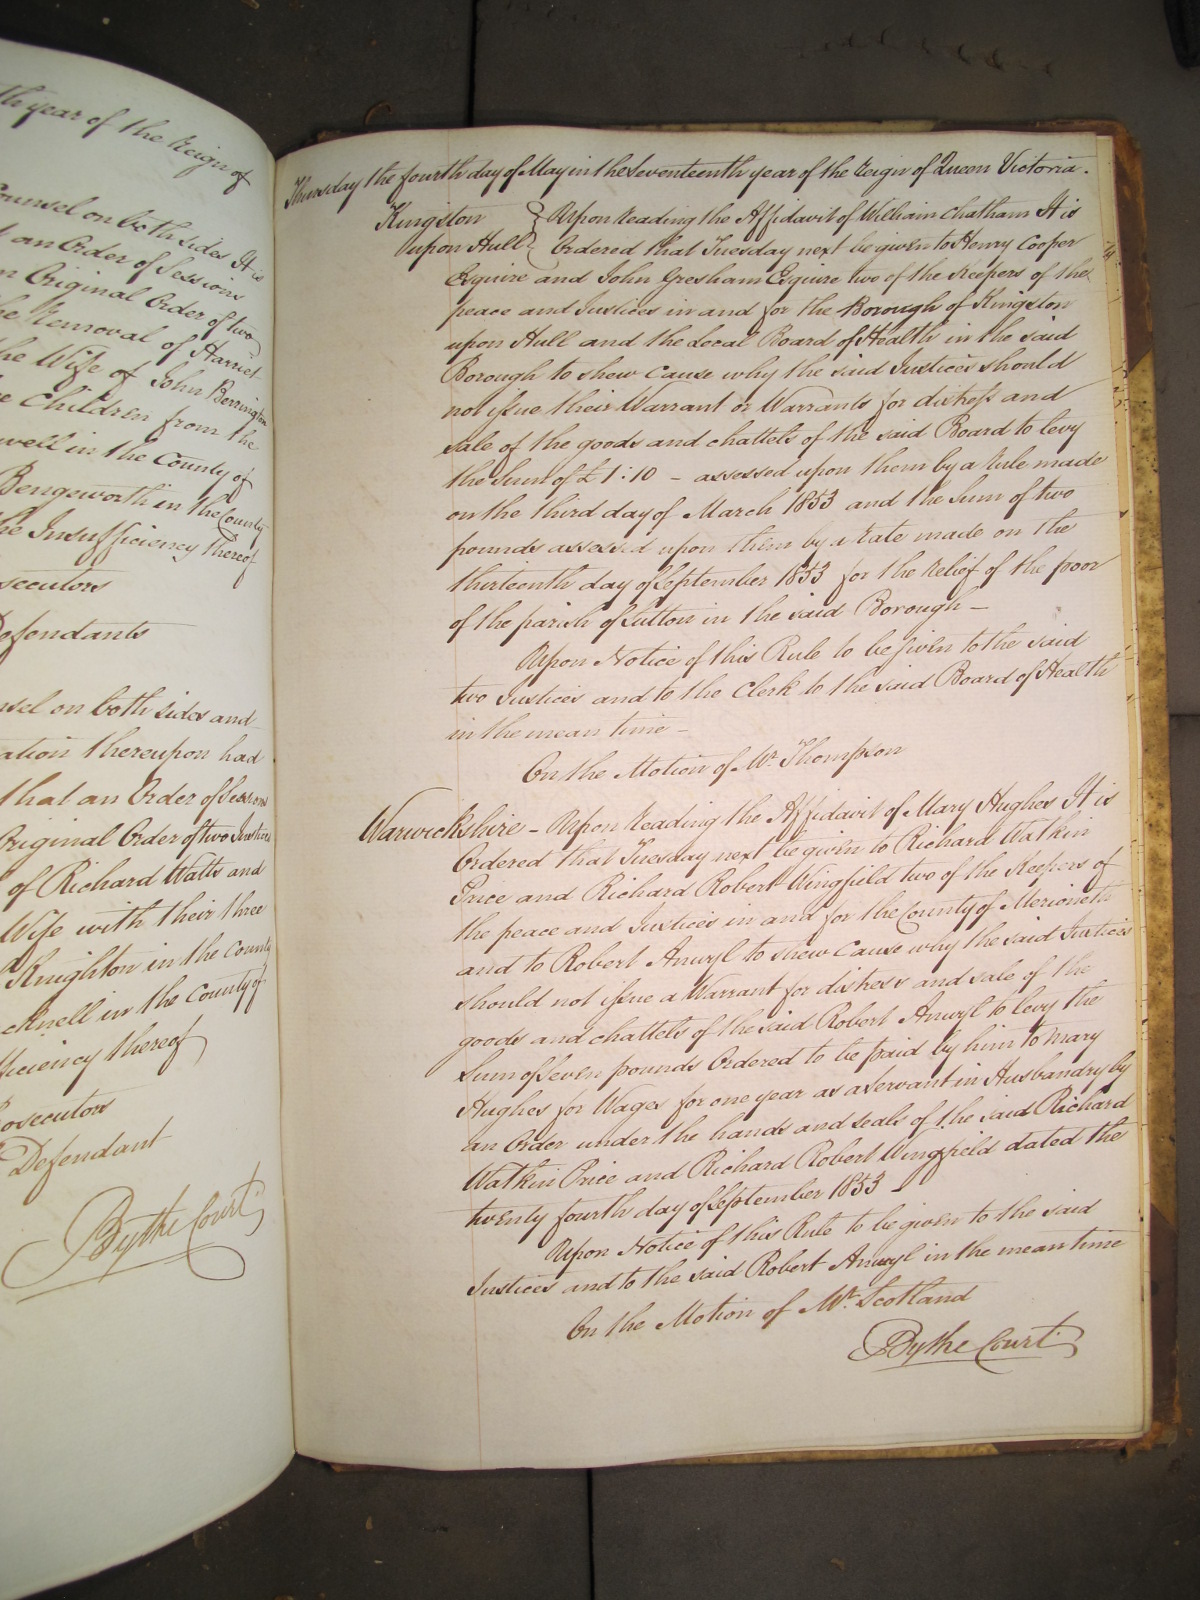 th year of the Reign of
Counsel on both sides It is
an Order of Sessions
n Original Order of two
he Removal of Harriet
the Wife of John Berrington
e Children from the
well in the County of
Bengeworth in the County
he Insufficiency thereof
secutors
Defendants
nsel on both sides and
ation thereupon had
that an Order of Sessions
Original Order of two Justices
of Richard Watts and
Wife with their three
Knighton in the County
cknell in the County of
fficiency thereof
osecutors
Defendant
By the Court
Thursday the fourth day of May in the Seventeenth year of the Reign of Queen Victoria.
Kingston upon Hull } Upon Reading the Affidavit of William Chatham It is
Ordered that Tuesday next be given to Henry Cooper
Esquire and John Gresham Esquire two of the Keepers of the
peace and Justices in and for the Borough of Kingston
upon Hull and the Local Board of Health in the said
Borough to shew Cause why the said Justices should
not issue their Warrant or Warrants for distress and
sale of the goods and chattels of the said Board to levy
the Sum of £1:10 – assessed upon them by a Rule made
on the third day of March 1853 and the Sum of two
pounds assessed upon them by a Rate made on the
thirteenth day of September 1853 for the Relief of the poor
of the parish of Sutton in the said Borough –
Upon Notice of this Rule to be given to the said
two Justices and to the Clerk to the said Board of Health
in the mean time –
On the Motion of Mr. Thompson
Warwickshire – Upon Reading the Affidavit of Mary Hughes It is
Ordered that Tuesday next be given to Richard Watkin
Price and Richard Robert Wingfield two of the Keepers of
the peace and Justices in and for the County of Merioneth
and to Robert Anwyl to shew Cause why the said Justices
should not issue a Warrant for distress and sale of the
goods and chattels of the said Robert Anwyl to levy the
Sum of Seven pounds Ordered to be paid by him to Mary
Hughes for Wages for one year as a Servant in Husbandry by
an Order under the hands and seals of the said Richard
Watkin Price and Richard Robert Wingfield dated the
twenty fourth day of September 1853 –
Upon Notice of this Rule to be given to the said
Justices and to the said Robert Anwyl in the mean time
On the Motion of Mr. Scotland
By the Court